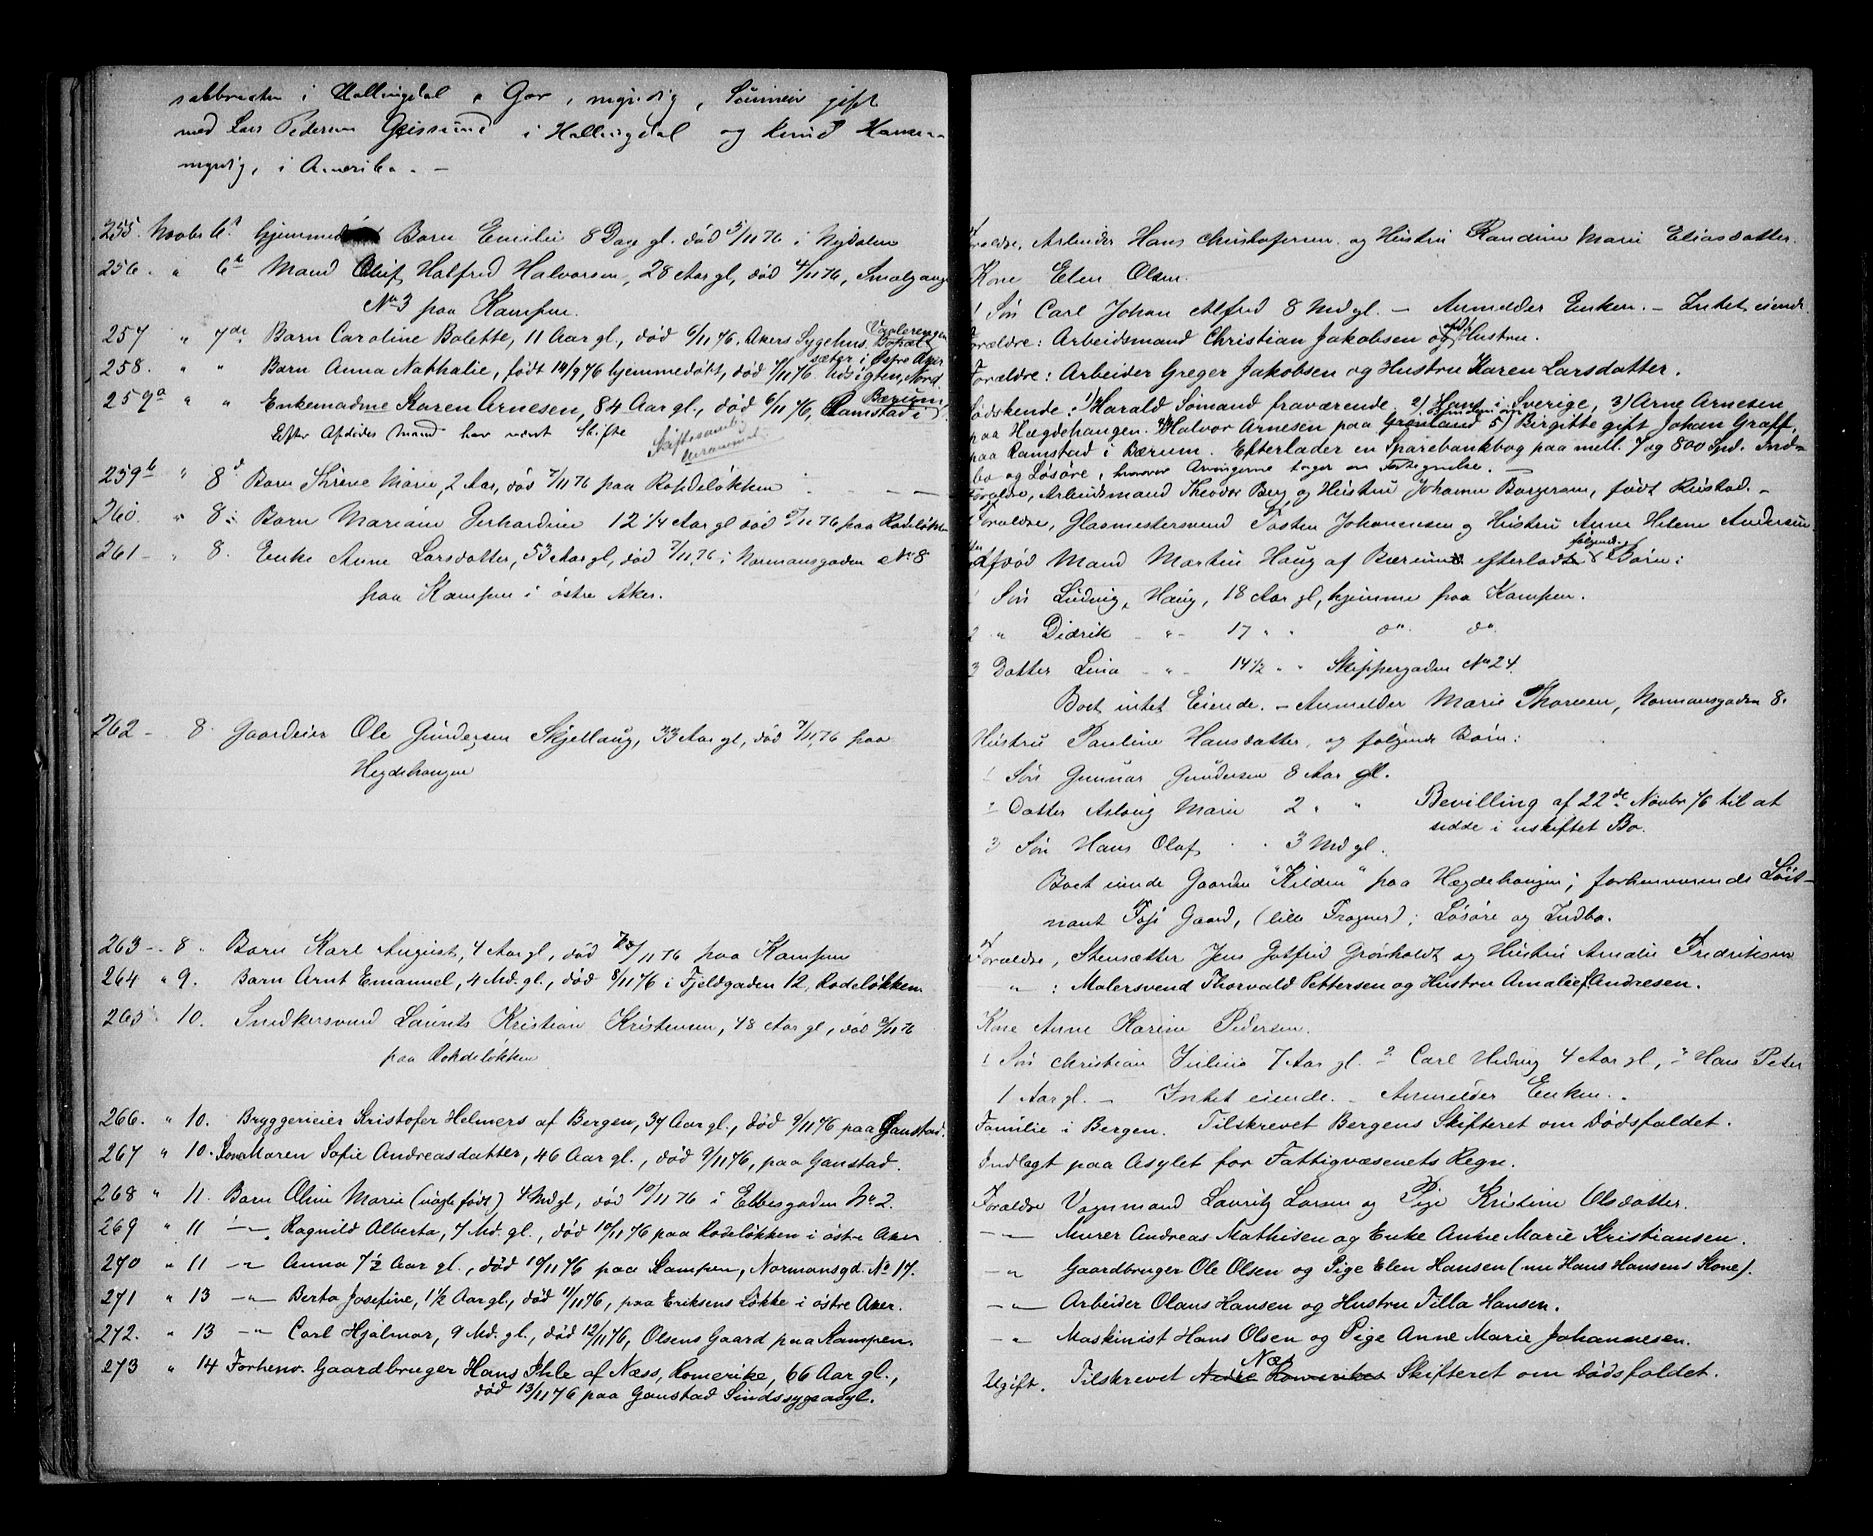 i Hallingdal i Gor, myndig, gift
med Lars Pedersen i Hallingdal og Knud Hansen
myndig, i Amerika. —
255. Novbr 6t hjemmedøbt Barn Emilie 8 Dage gl. død 5/11 76 i Nydalen
256. " 6t Mand Oluf Halfred Halvorsen, 28 Aar gl, død 4/11 76, Smalgangen
No 3 paa Kampen.
257 " 7de Barn Caroline Bolette, 11 Aar gl, død 6/11 76. Akers Sygehus. Vaalerengen
258. " " Barn Anna Nathalie, født 14/9 76 hjemmedøbt, død 7/11 76 Udsigten, Nord
sæter i Østre Aker
259a " " Enkemadme Karen Arnesen, 84 Aar gl., død 6/11 76, Ramstad i Bærum.
Efter Afdødes Mand har været Skifte
259b " 8d Barn Thrine Marie, 2 Aar, død 7/11 76 paa Rohdeløkken
260. " 8 Barn Mariane Gerhardine 12 1/4 Aar gl død /11 76 paa Rodeløkken
261 — " 8. Enke Anne Larsdatter, 53 Aar gl, død 7/11 76 i Normansgaden No 8
paa Kampen i østre Aker.
262 — 8. Gaardeier Ole Gundersen Skjellaug, 33 Aar gl, død 7/11 76 paa
Hegdehaugen
263 — 8. Barn Karl August, 4 Aar gl, død /11 76 paa Kampen
264 " 9. Barn Arnt Emanuel, 4 Md. gl., død 8/11 76 i Fjeldgaden 12, Rodeløkken.
265 10. Snedkersvend Laurits Kristian Kristensen, 48 Aar gl, død 9/11 76
paa Rohdeløkken
266. " 10. Bryggerieier Kristofer Helmers af Bergen, 37 Aar gl., død 9/11 76 paa Gaustad.
267 " 10. Kone Maren Sofie Andreasdatter, 46 Aar gl., død 9/11 76, paa Gaustad.
268 " 11. Barn Oline Marie (uægte født) 4 Md gl, død 10/11 76 i Ebbesgaden No 2.
269 " 11 —"— Ragnild Alberta, 7 Md. gl., død 10/11 76 paa Rodeløkken i østre Aker
270 " 11 —"— Anna 7 1/2 Aar gl., død 10/11 76 paa Kampen, Normansgd. No 17.
271 " 13 —"— Berta Josefine, 1 1/2 Aar gl., død 11/11 76, paa Eriksens Løkke i østre Aker.
272. " 13 —"— Carl Hjalmar, 9 Md. gl., død 12/11 76, Olsens Gaard paa Kampen.
273 " 14 Forhenv. Gaardbruger Hans Ihle af Næss, Romerike, 66 Aar gl.,
død 13/11 76 paa Gaustad Sindssygeasyl.
Forældre, Arbeider Hans Christofersen og Hustru Randine Marie Eliasdatter.
Kone Elen Olsen.
1 Søn Carl Johan Alfred 8 Md gl. — Anmelder Enken. — Intet eiende.
Forældre: Arbeidsmand Christian Jakobsen og Hustru.
Forældre: Arbeider Greger Jakobsen og Hustru Karen Larsdatter.
Sødskende: 1) Harald Sømand fraværende, 2) Hans i Sverige, 3) Arne Arnesen
paa Hægdehaugen. 4) Halvor Arnesen paa Grønland 5) Birgitte gift Johan Graff,
paa Ramstad i Bærum. Efterlader en Sparebankbog paa mell. 7 og 800 Spd. Ind-
bo og Løsøre, hvorover Arvingerne tager en Fortegnelse. —
Forældre, Arbeidsmand Theodor Berg og Hustru Johanne Børgersen, født Rustad. —
Forældre, Glasmestersvend Torsten Johannesen og Hustru Anne Helene Andersen
Afdød Mand Martin Haug af Bærum efterladt følgende Børn:
1 Søn Ludvig Haug, 18 Aar gl, hjemme paa Kampen.
2 " Didrik — " — 17 " " do. do.
3 Datter Lina — " — 14 1/2 " " Skippergaden No 24.
Boet intet Eiende. — Anmelder Marie Thoresen, Normansgaden 8.
Hustru Pauline Hansdatter, og følgende Børn:
1 Søn Gunnar Gundersen 8 Aar gl.
2 Datter Aslaug Marie 2 " " Bevilling af 22de Novbr 76 til at
sidde i uskiftet Bo.
3 Søn Hans Olaf " 3 Md gl.
Boet eiende Gaarden "Kilden" paa Hægdehaugen; forhenværende Løit-
nant Gaard, (lille Frogner); Løsøre og Indbo.
Forældre, Stensætter Jens Gotfrid Grønholdt og Hustru Amalie Fredriksen
—"— : Malersvend Thorvald Pettersen og Hustru Amalie f. Andresen.
Kone Anne Karine Pedersen.
1 Søn Christian Julius 7 Aar gl. 2 Carl Hedvig 4 Aar gl., 3 Hans Peter
1 Aar gl. — Intet eiende. — Anmelder Enken.
Familie i Bergen. Tilskrevet Bergens Skifteret om Dødsfaldet.
Indlagt paa Asylet for Fattigvæsenets Regn.
Forældre Vognmand Lauritz Larsen og Pige Kristine Olsdatter.
—"— Murer Andreas Mathisen og Enke Anne Marie Kristiansen.
—"— Gaardbruger Ole Olsen og Pige Elen Hansen (nu Hans Hansens Kone).
—"— Arbeider Olaus Hansen og Hustru Tilla Hansen.
—"— Maskinist Hans Olsen og Pige Anne Marie Johannesen.
Ugift. Tilskrevet Nedre Romerikes Næs Skifteret om Dødsfaldet.